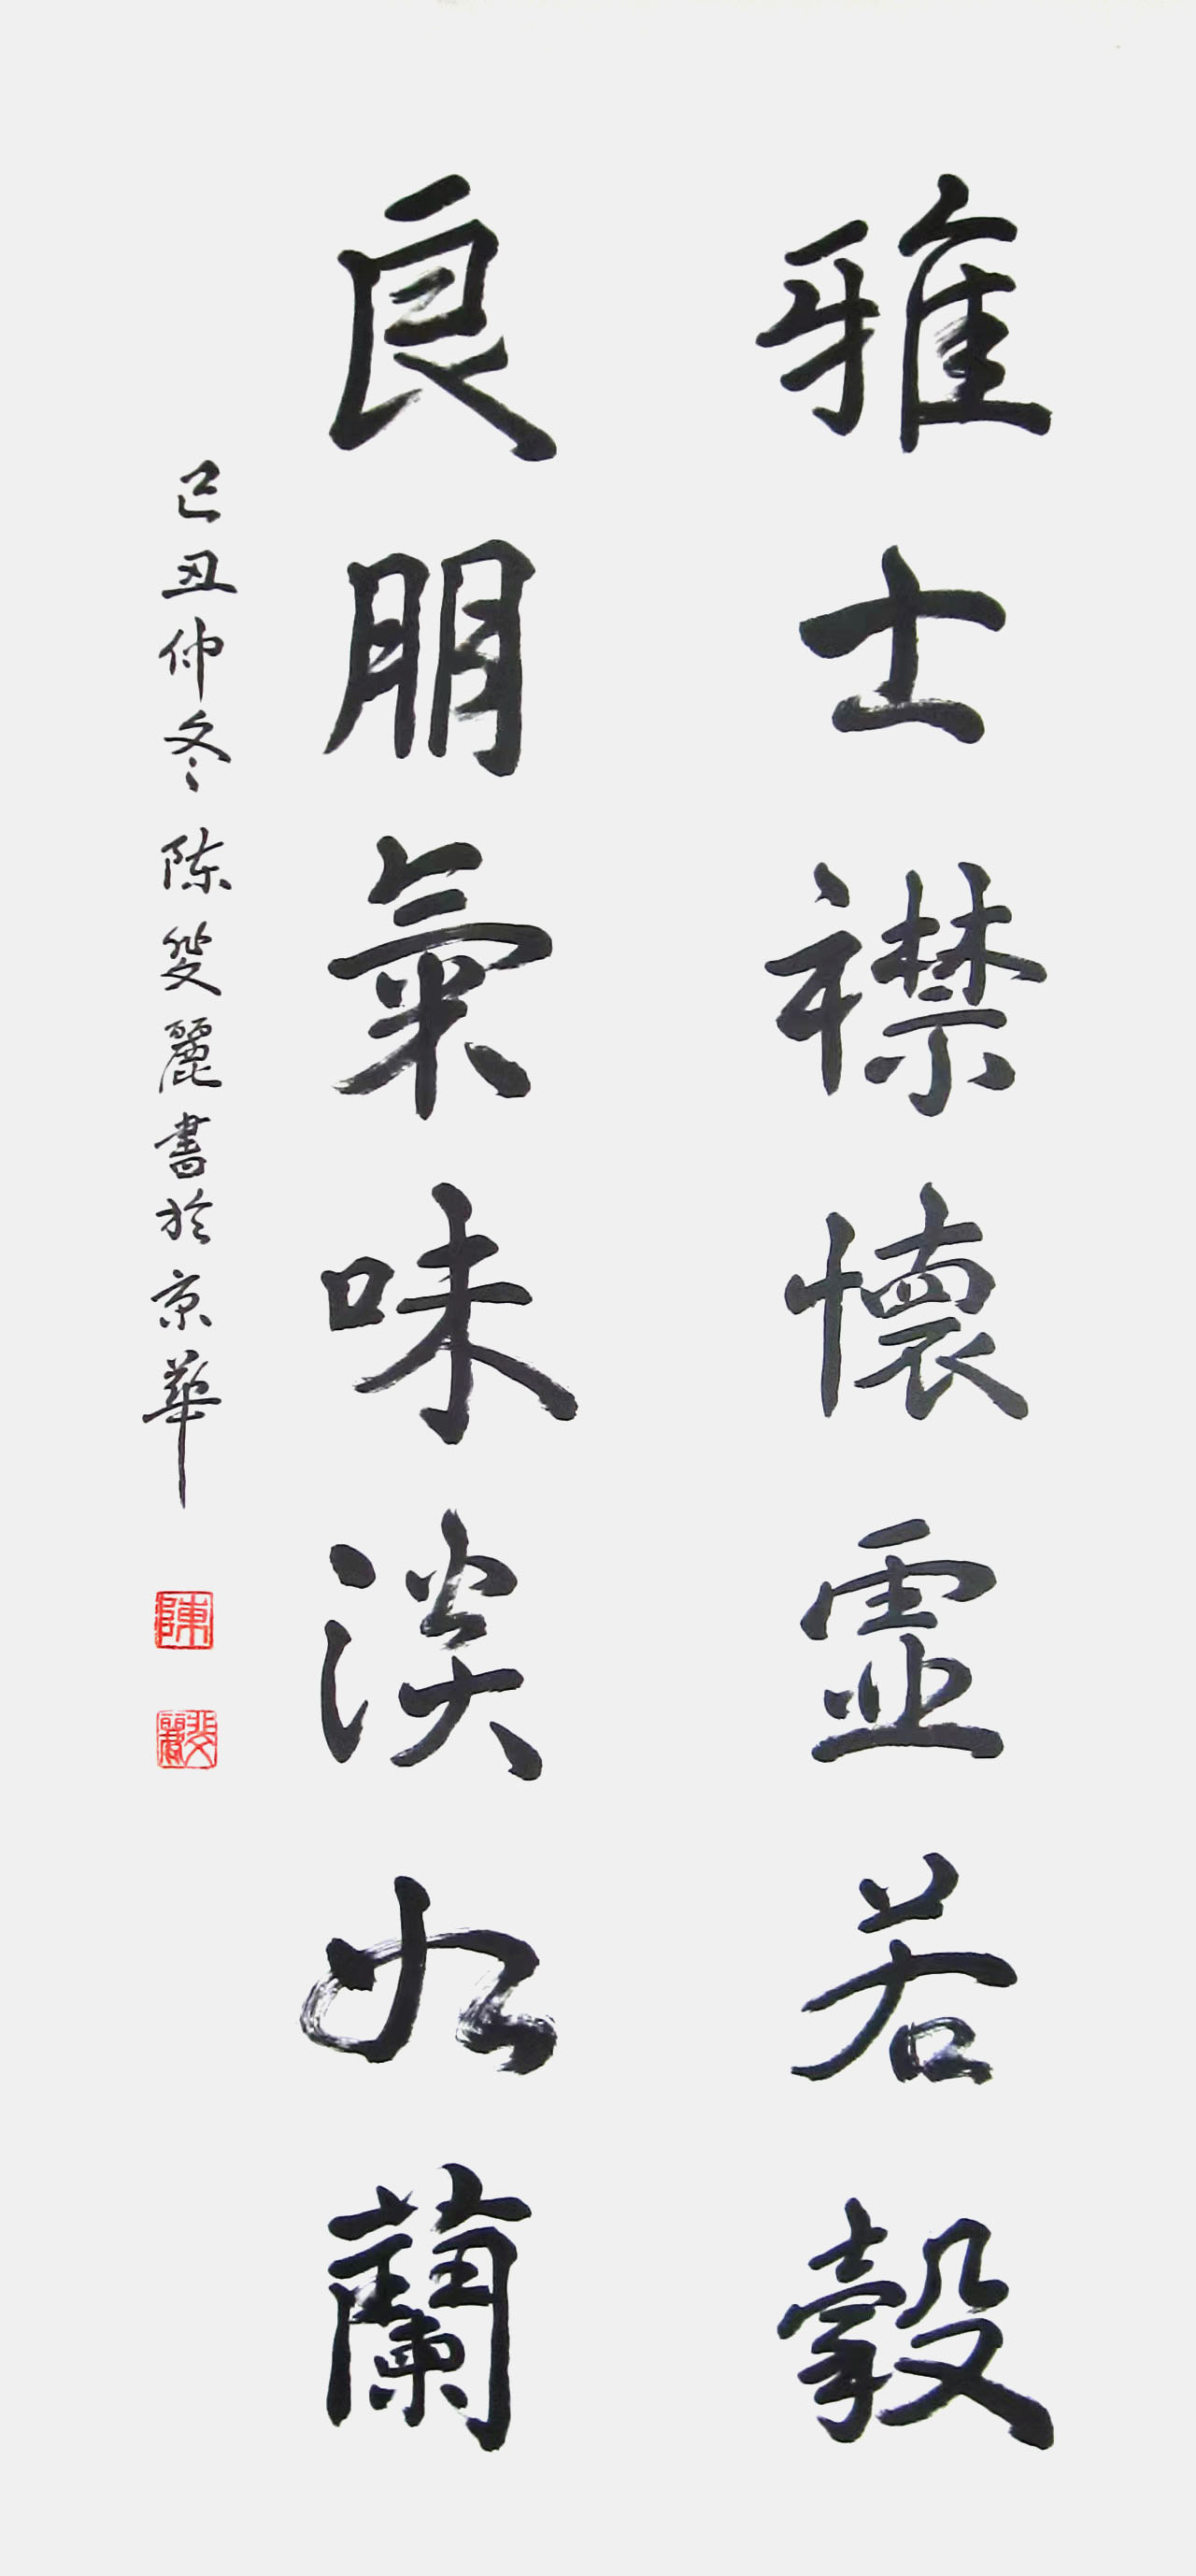 雅士襟懷虛若穀
良朋氣味淡如蘭
己丑仲冬陈斐麗書於京華
陳
斐麗